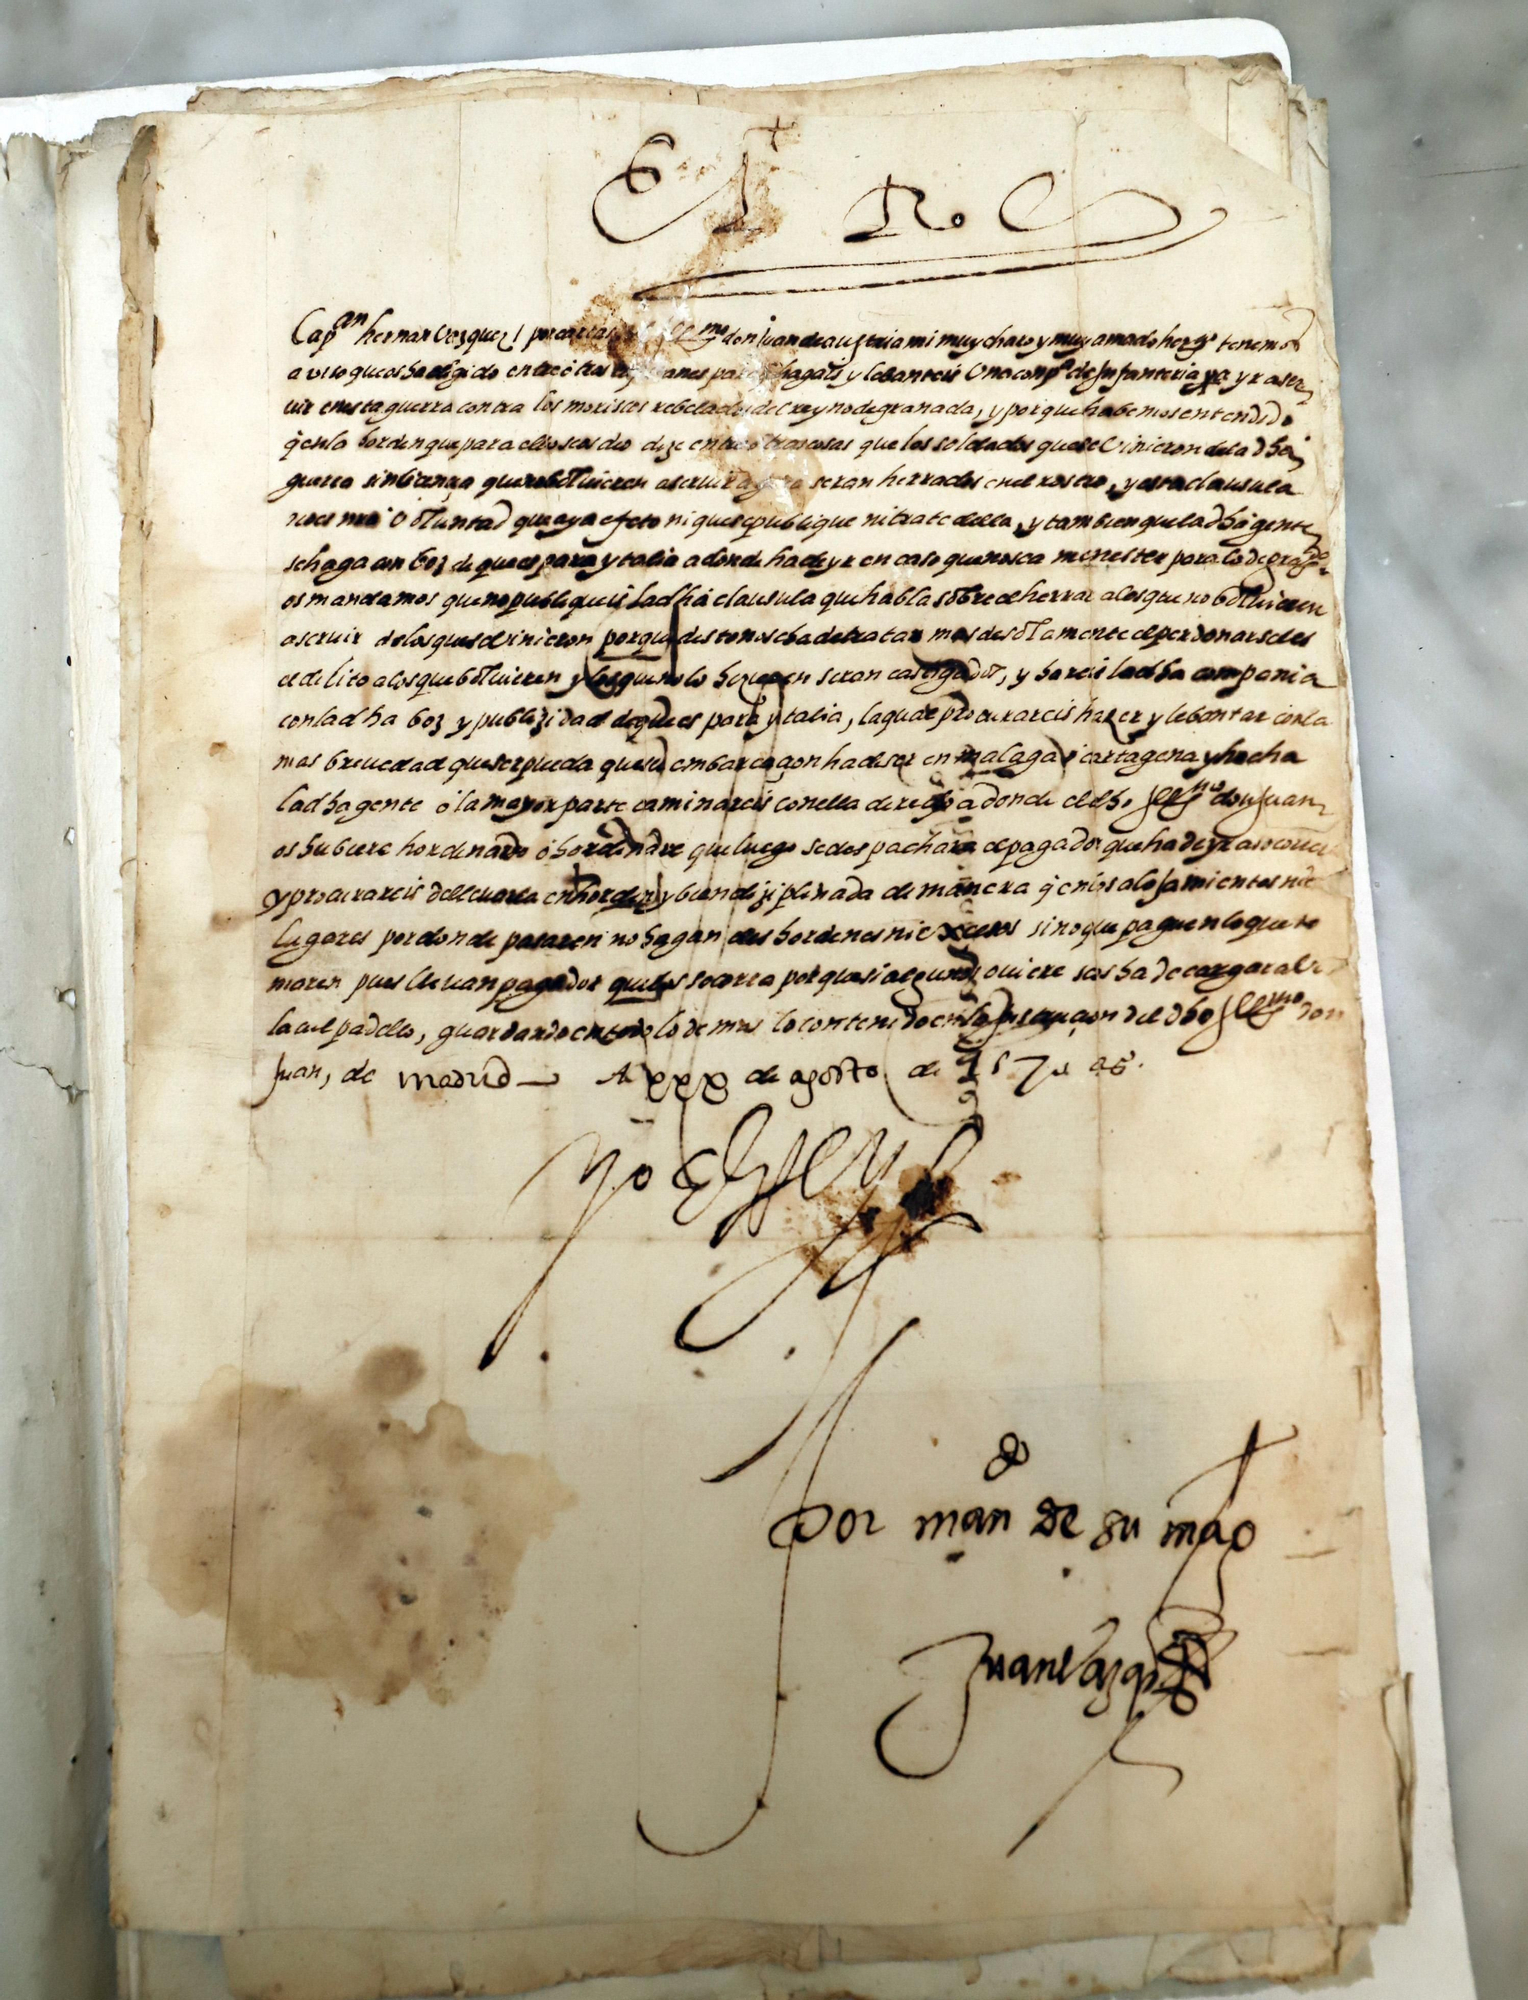 El Rey
Capan hernan Vazquez por cartas del Illmo don Juan de austria mi muy charo y muy amado hermo tenemos
aviso que os ha elegido entre otros capitanes para q hagais y lebanteis Una compa de Infanteria pa yr a ser
vir en esta guerra contra los moriscos rebelados del reyno de granada, y porque habemos entendido
q en la horden que para ello se os dio dize entre otras cosas que los soldados que se Vinieron de la dha
guerra sin licençia que no bolvieren a servir a ella seran herrados en el rostro, y esta clausula
no es mi Voluntad que aya efeto ni que se publique ni trate della, y tambien que la dha gente
se haga con boz de que es para ytalia a donde ha de yr en caso que no sea menester para lo de granada
os mandamos que no publiqueis la dha clausula que habla sobre el herrar a los que no bolvieren
a servir de los que se vinieron porque desto no se ha de tratar mas de solamente el perdonarseles
el delito a los que bolvieren y los que no lo hizieren seran castigados, y hareis la dha compania
con la dha boz y publizidad de que es para ytalia, la qual procurareis hazer y lebantar con la
mas brevedad que ser pueda que su embarcaçon ha de ser en malaga o cartagena y hecha
la dha gente o la mayor parte caminareis con ella derecho a donde el dho Illmo don Juan
os hubiere hordenado o hordenare que luego se despachara el pagador que ha de yr a socorrerla
y procurareis de llevarla en horden y bien diziplinada de manera q en los alojamientos ni
lugares por donde pasaren no hagan deshordenes ni excesos sino que paguen lo que to
maren pues llevan pagador que los socorra porque si alguno oviere se os ha de cargar a vos
la culpa dello, guardando en todo lo demas lo contenido en la Instruçion del dho Illmo don
Juan, de madrid A xxx de agosto de 1570 as.
Yo El Rey
Por mando de su mag
Juan Vazquez